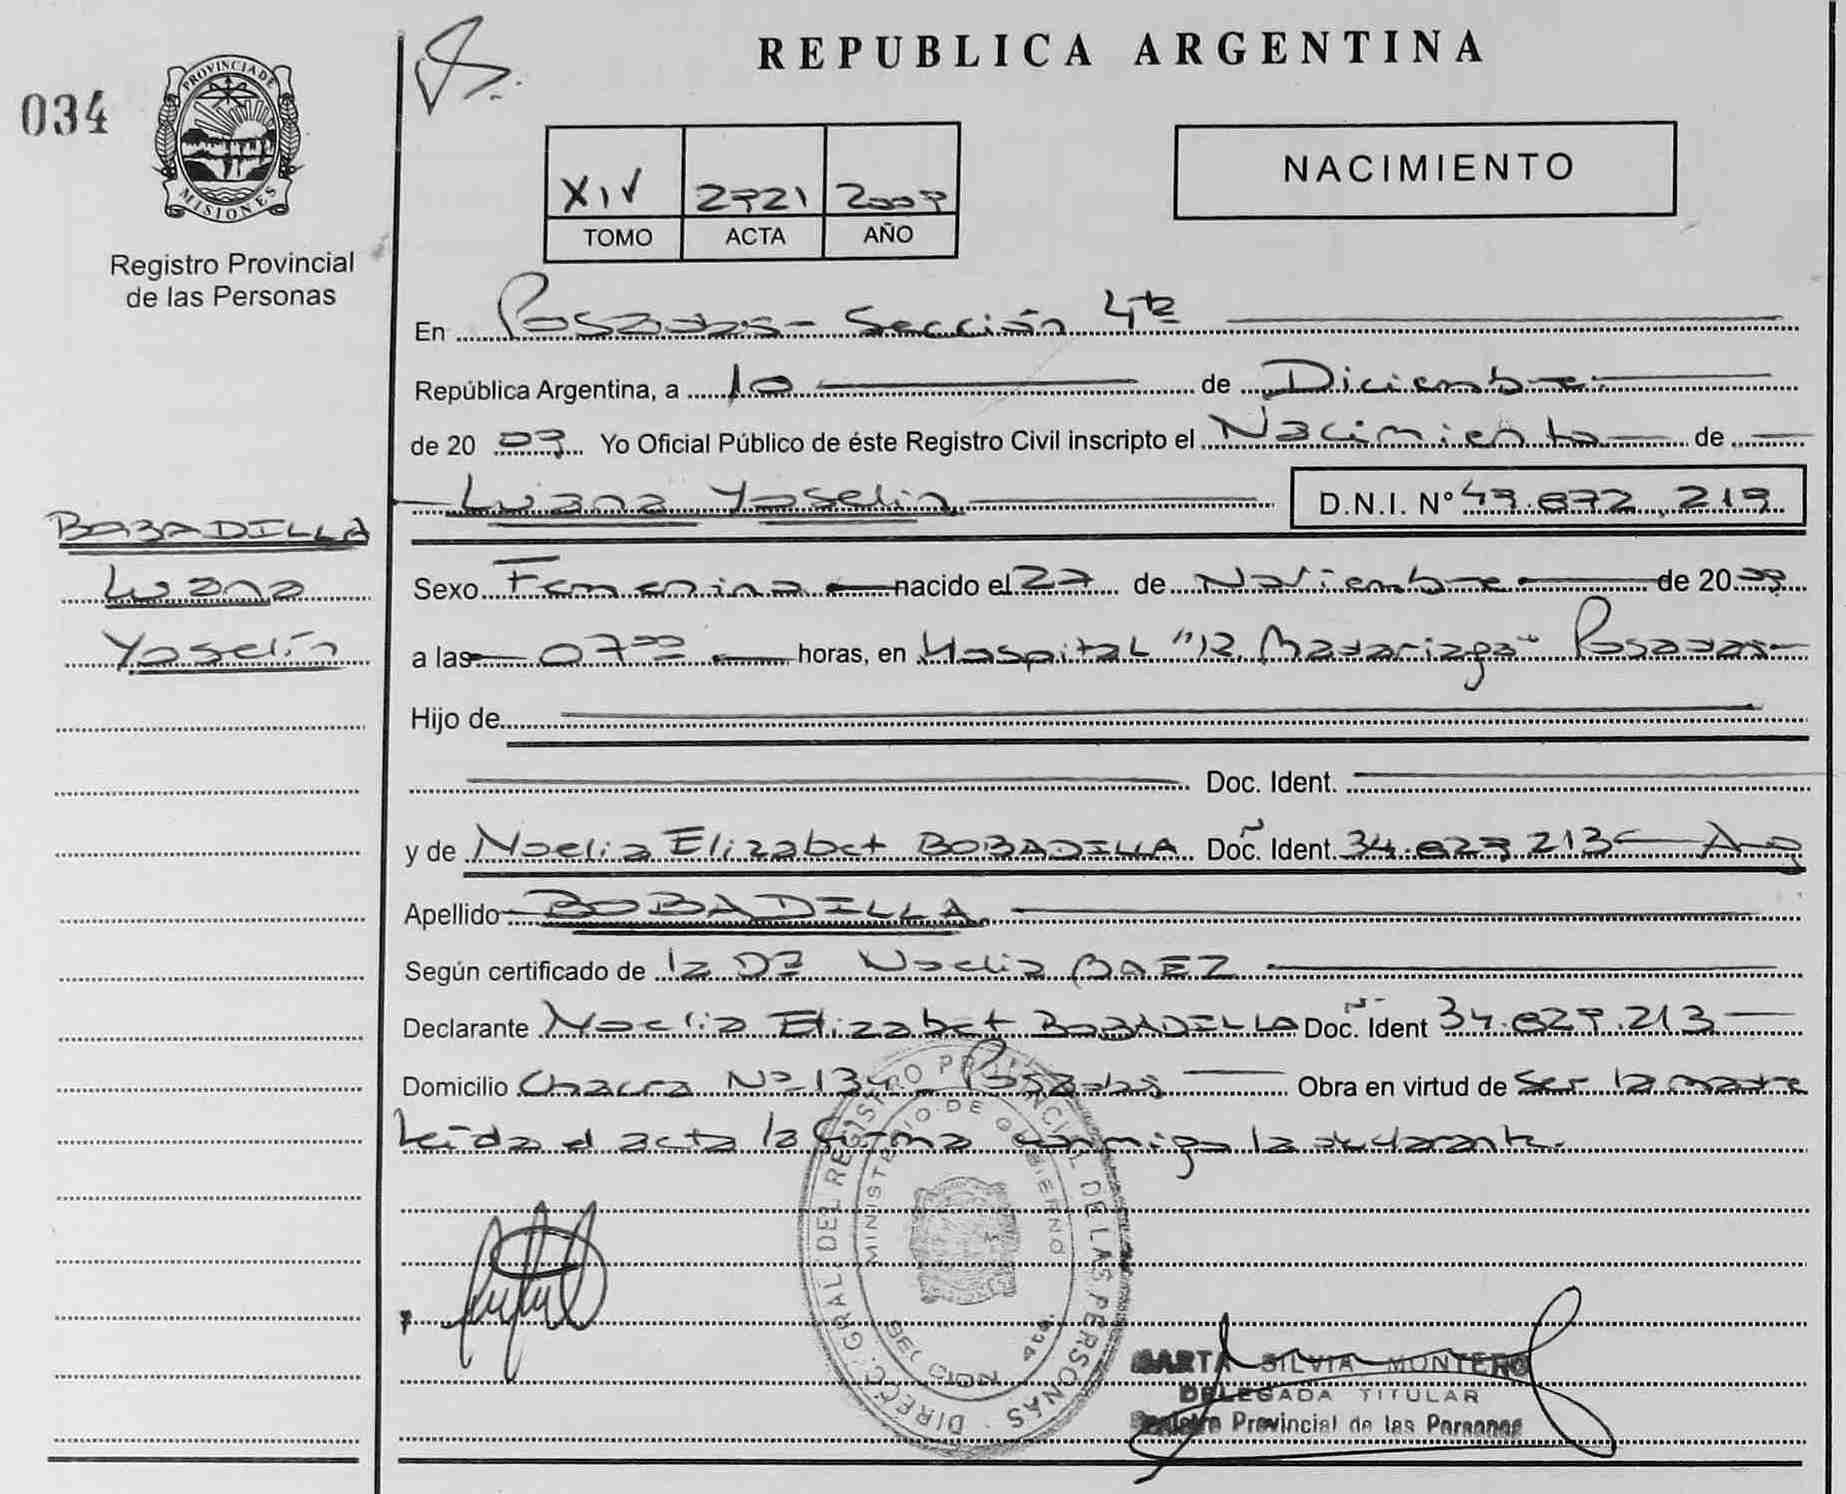 034
PROVINCIA DE MISIONES
Registro Provincial
de las Personas
REPUBLICA ARGENTINA
NACIMIENTO
XIV 2721 2009
TOMO ACTA AÑO
En Posadas - Sección 4ta
República Argentina, a 10 de Diciembre
de 20 09 Yo Oficial Público de éste Registro Civil inscripto el Nacimiento de
Luana Yoselin D.N.I. Nº 49.872.219
BABADILLA
Luana
Yoselín
Sexo Femenina nacido el 27 de Noviembre de 20 09
a las 07 00 horas, en Hospital "R. Madariaga" Posadas
Hijo de
Doc. Ident.
y de Noelia Elizabet BOBADILLA Doc. Ident. 34.829.213 Arg
Apellido BOBADILLA
Según certificado de la Noelia BAEZ
Declarante Noelia Elizabet BOBADILLA Doc. Ident 34.829.213
Domicilio Chacra Nº 134 - Posadas Obra en virtud de ser la madre
Leída el acta la firma conmigo la declarante.
DIREC. GRAL DEL REGISTRO PROVINCIAL DE LAS PERSONAS
MINISTERIO DE GOBIERNO
SECCION 4ta
MARTA SILVIA MONTERO
DELEGADA TITULAR
Registro Provincial de las Personas